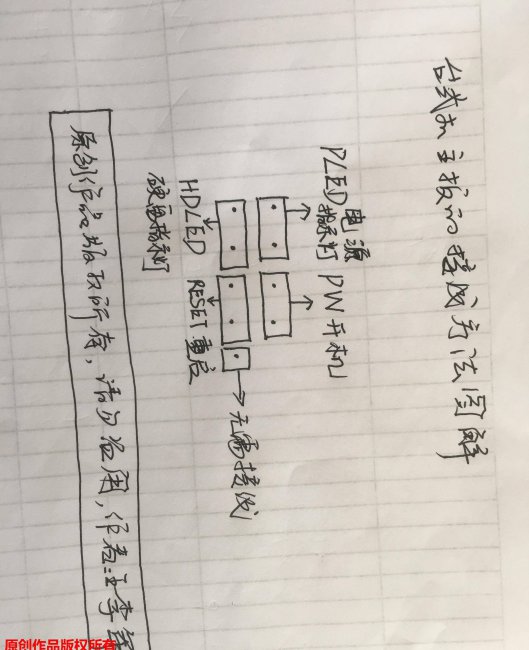 台式机主板的接线方法图解
PLED 电源
指示灯
PW 开机
HDLED
硬盘指示灯
RESET 重启
无需接线
原创作品版权所有,请勿盗用,作者:主李
原创作品版权所有